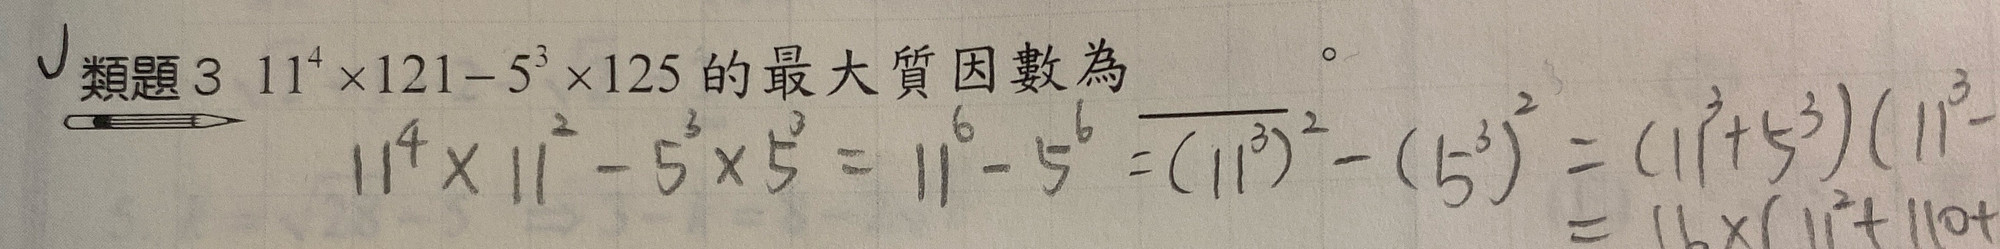 類題3 11⁴×121−5³×125的最大質因數為________。
11⁴×11²−5³×5³=11⁶−5⁶=(11³)²−(5³)²=(11³+5³)(11³−
=16×(11²+110+